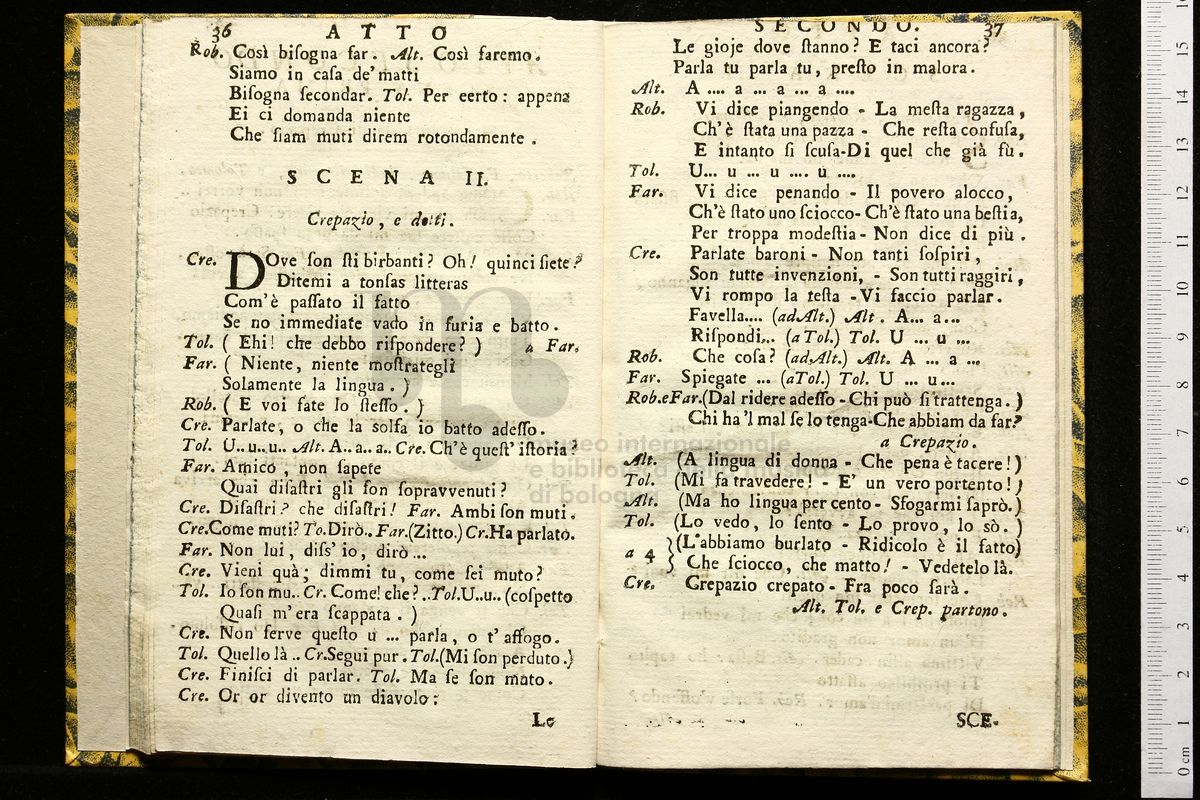 36 ATTO
Rob. Così bisogna far. Alt. Così faremo.
Siamo in casa de' matti
Bisogna secondar. Tol. Per eerto: appena
Ei ci domanda niente
Che siam muti direm rotondamente.
SCENA II.
Crepazio, e detti.
Cre. DOve son sti birbanti? Oh! quinci siete?
Ditemi a tonsas litteras
Com'è passato il fatto
Se no immediate vado in furia e batto.
Tol. ( Ehi! che debbo rispondere? ) a Far.
Far. ( Niente, niente mostrategli
Solamente la lingua. )
Rob. ( E voi fate lo stesso. )
Cre. Parlate, o che la solfa io batto adesso.
Tol. U..u..u.. Alt. A..a..a.. Cre. Ch'è quest' istoria?
Far. Amico, non sapete
Quai disastri gli son sopravvenuti?
Cre. Disastri? che disastri! Far. Ambi son muti.
Cre. Come muti? To. Dirò.. Far. (Zitto.) Cr. Ha parlato.
Far. Non lui, diss' io, dirò ...
Cre. Vieni quà; dimmi tu, come sei muto?
Tol. Io son mu.. Cr. Come! che?.. Tol. U..u.. (cospetto
Quasi m'era scappata. )
Cre. Non serve questo u ... parla, o t' affogo.
Tol. Quello là .. Cr. Segui pur. Tol. (Mi son perduto.)
Cre. Finisci di parlar. Tol. Ma se son muto.
Cre. Or or divento un diavolo:
Le
SECONDO. 37
Le gioje dove stanno? E taci ancora?
Parla tu parla tu, presto in malora.
Alt. A .... a ... a ... a ....
Rob. Vi dice piangendo - La mesta ragazza,
Ch'è stata una pazza - Che resta confusa,
E intanto si scusa - Di quel che già fu.
Tol. U... u ... u .... u ....
Far. Vi dice penando - Il povero alocco,
Ch'è stato uno sciocco - Ch'è stato una bestia,
Per troppa modestia - Non dice di più.
Cre. Parlate baroni - Non tanti sospiri,
Son tutte invenzioni, - Son tutti raggiri,
Vi rompo la testa - Vi faccio parlar.
Favella.... (ad Alt.) Alt. A... a...
Rispondi... (a Tol.) Tol. U ... u ...
Rob. Che cosa? (ad Alt.) Alt. A ... a ...
Far. Spiegate ... (a Tol.) Tol. U ... u...
Rob. e Far. (Dal ridere adesso - Chi può si trattenga. )
Chi ha 'l mal se lo tenga - Che abbiam da far?
a Crepazio.
Alt. (A lingua di donna - Che pena è tacere!)
Tol. (Mi fa travedere! - E' un vero portento!)
Alt. (Ma ho lingua per cento - Sfogarmi saprò.)
Tol. (Lo vedo, lo sento - Lo provo, lo sò. )
a 4 } (L'abbiamo burlato - Ridicolo è il fatto)
Che sciocco, che matto! - Vedetelo là.
Cre. Crepazio crepato - Fra poco sarà.
Alt. Tol. e Crep. partono.
SCE-
museo internazionale
e biblioteca della musica
di bologna